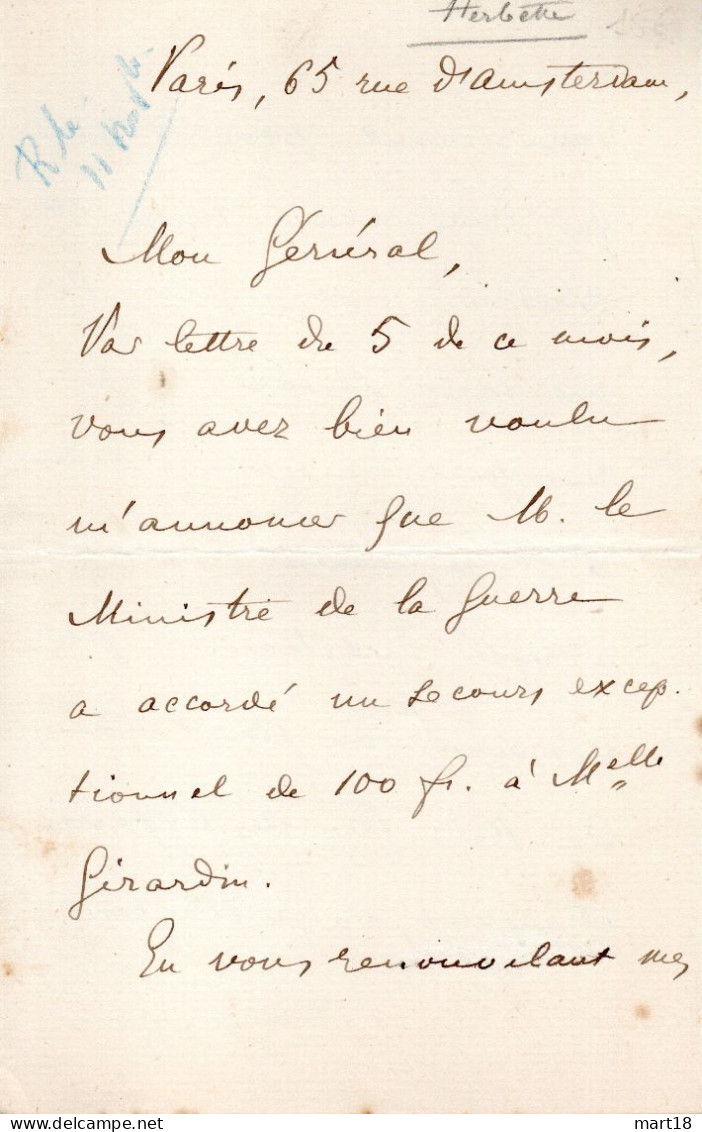 Herbette
Paris, 65 rue d'Amsterdam,
Mon Général,
Par lettre du 5 de ce mois,
vous avez bien voulu
m'annoncer que M. le
Ministre de la Guerre
a accordé un secours excep-
tionnel de 100 fr. à Melle
Girardin.
En vous renouvelant mes
mart18